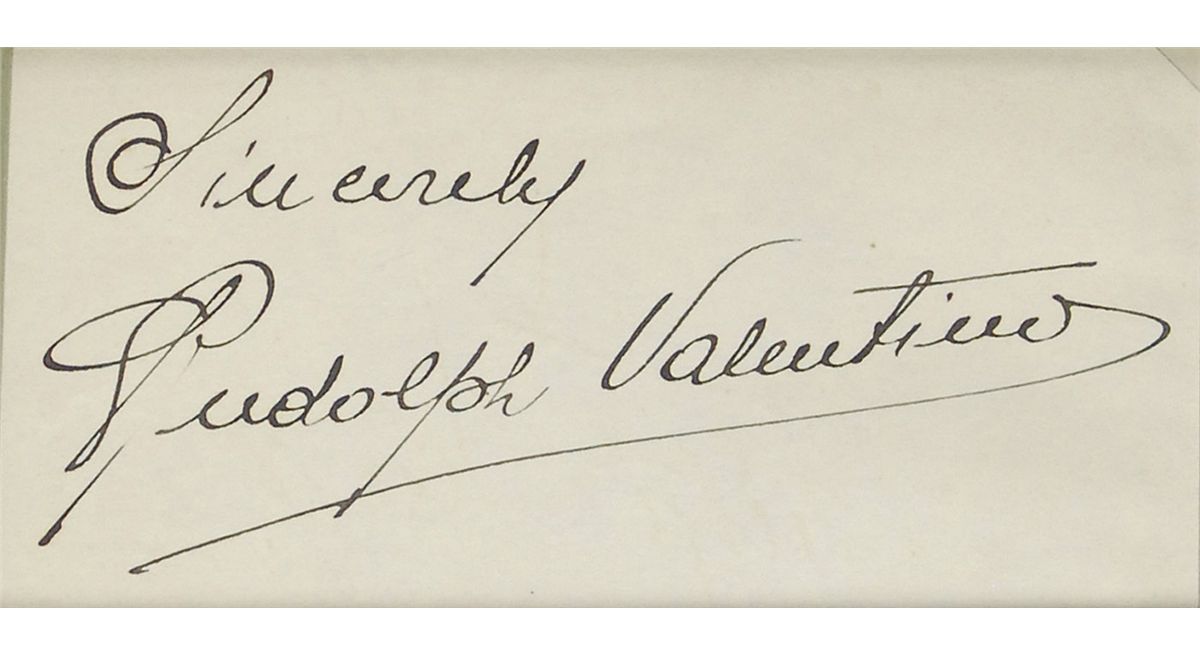 Sincerely
Rudolph Valentino